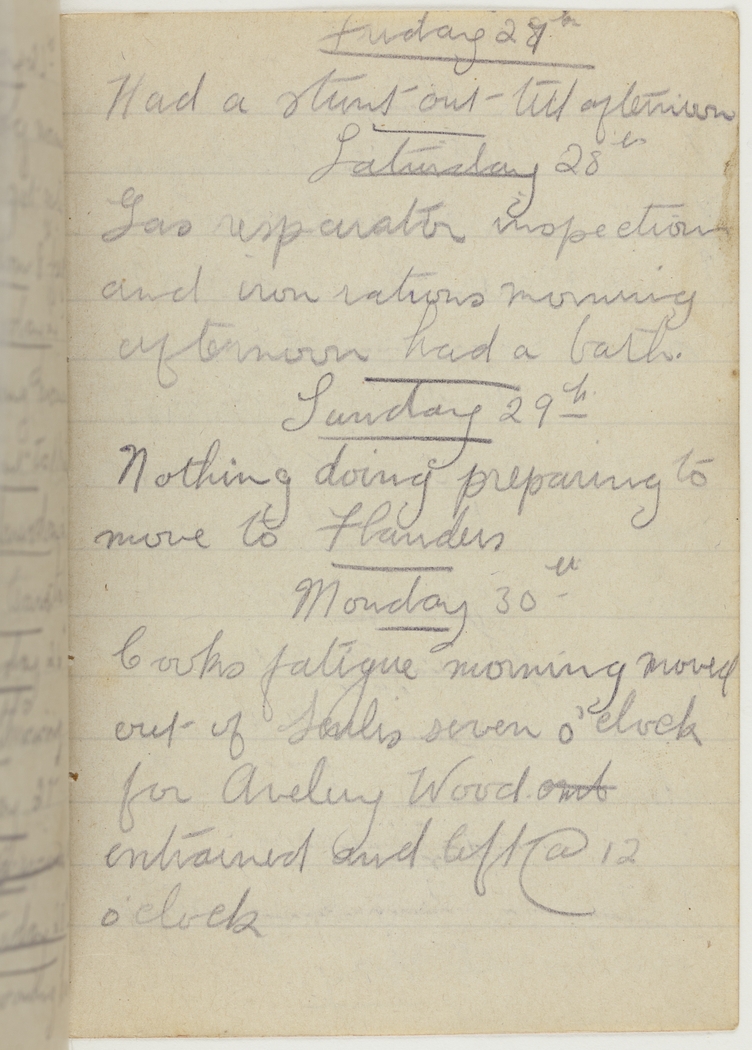 Friday 27th
Had a stunt out till afternoon
Saturday 28th
Gas resparator inspection
and iron rations morning
afternoon had a bath.
Sunday 29th
Nothing doing preparing to
move to Flanders
Monday 30th
Cooks fatigue morning moved
out of Senlis seven o'clock
for Aveluy Wood
entrained and left @ 12
o'clock